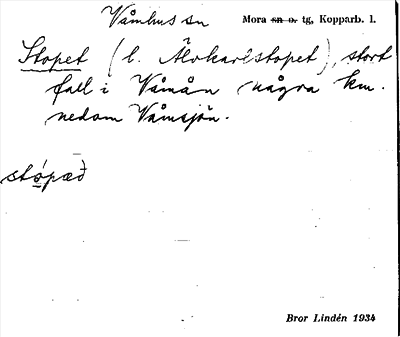 Våmhus sn Mora sn o. tg, Kopparb. l.
Stopet (l. Älvkarlstopet), stort
fall i Våmån några km.
nedom Våmsjön.
stópæð
Bror Lindén 1934